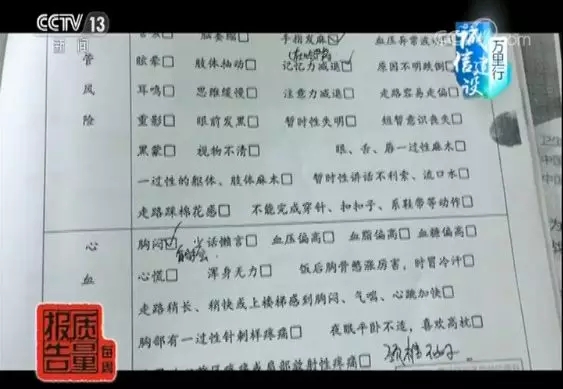 CCTV 13
新闻
诚信建设
万里行
脑萎缩□ 手指发麻☑ 血压异常波动
管 眩晕□ 肢体抽动□ 记忆力减退☑ 原因不明跌倒□
风 耳鸣□ 思维缓慢□ 注意力减退□ 走路容易走偏□
险 重影□ 眼前发黑□ 暂时性失明□ 短暂意识丧失□
黑蒙□ 视物不清□ 眼、舌、唇一过性麻木□
一过性的躯体、肢体麻木□ 暂时性讲话不利索、流口水□
走路踩棉花感□ 不能完成穿针、扣扣子、系鞋带等动作□
心 胸闷☑ 少话懒言□ 血压偏高□ 血脂偏高□ 血糖偏高□
血 心慌□ 浑身无力□ 饭后胸骨憋涨厉害,时冒冷汗□
走路稍长、稍快或上楼梯感到胸闷、气喘、心跳加快□
胸部有一过性针刺样疼痛□ 夜眠平卧不适,喜欢高枕□
或肩部放射性疼痛□
质量
报告
每周